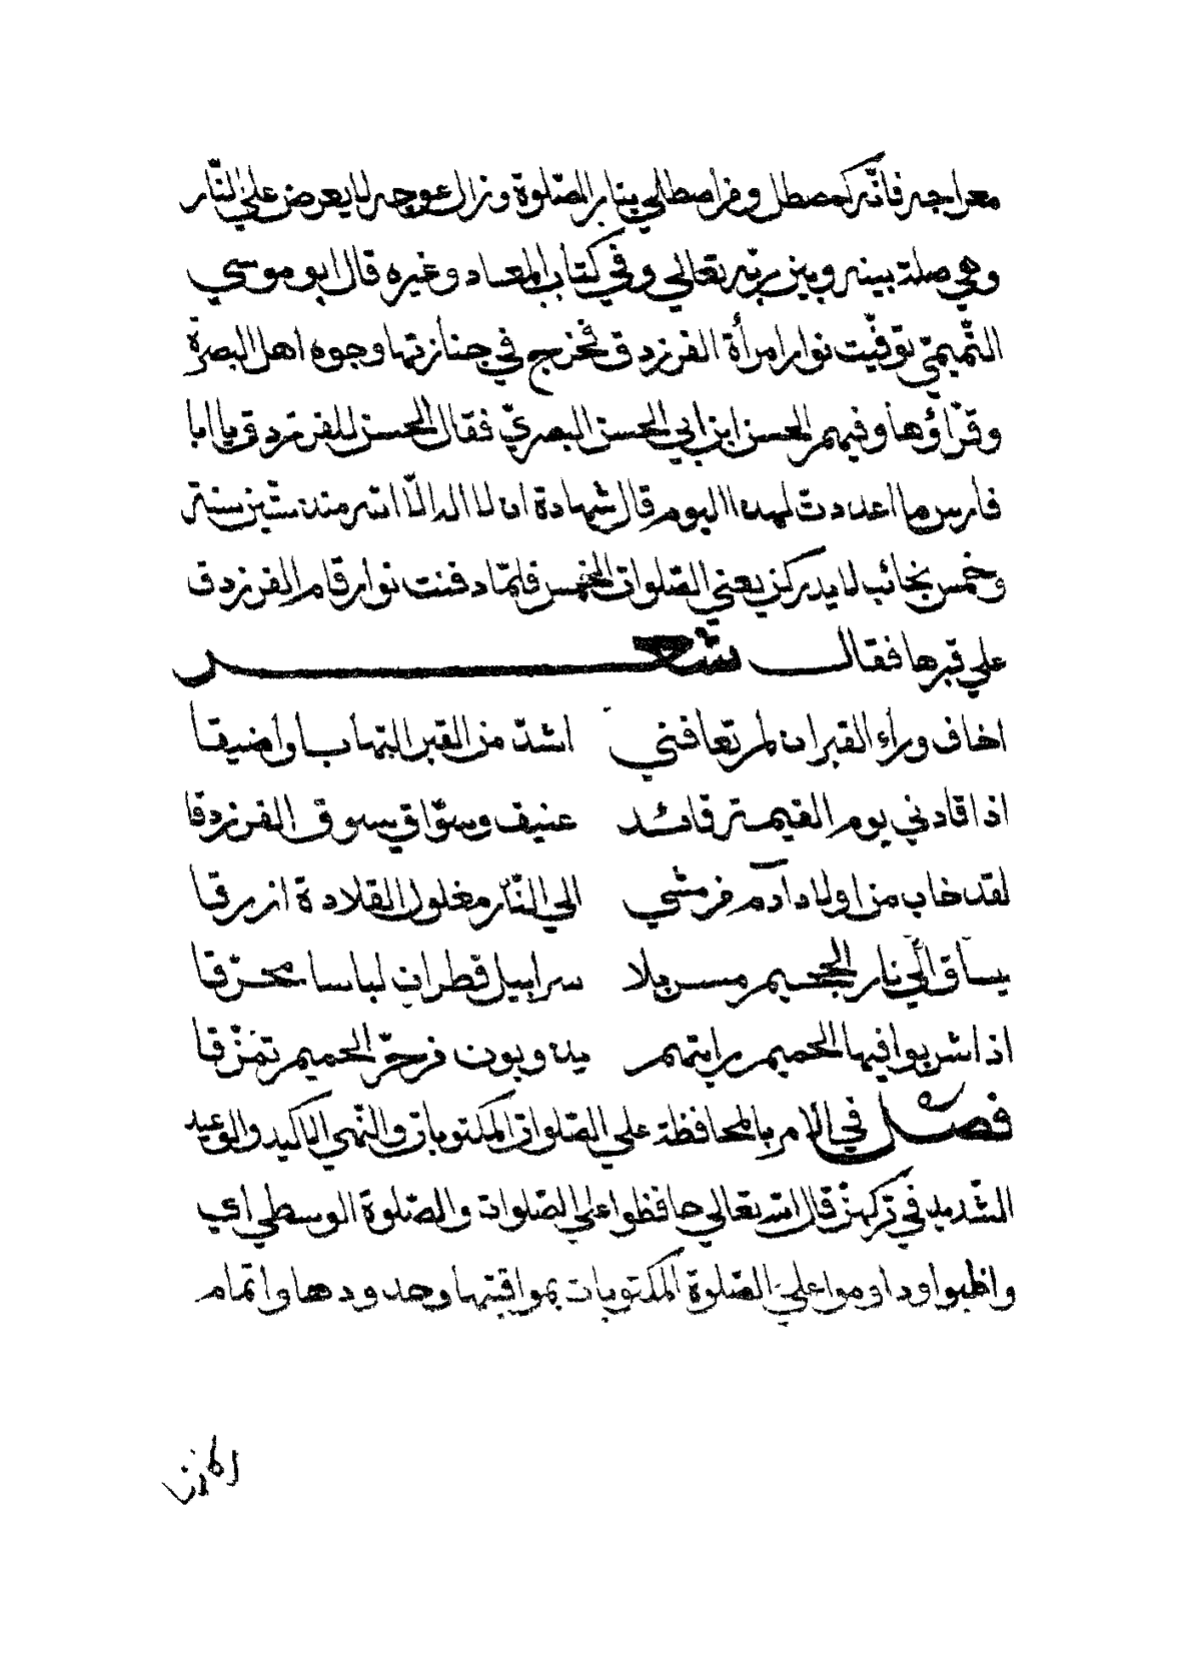 معراجه فانّه كمصطل ومن اصطلي بنار الصّلوة وزال عوجه لا يعرض علي النّار
وهي صلة بينه وبين ربّه تعالي وفي كتاب المعاد وغيره قال ابو موسي
التّميميّ توفّيت نوار امرأة الفرزدق فخرج في جنازتها وجوه اهل البصرة
وقرّاؤها وفيهم الحسن ابن ابي الحسن البصريّ فقال الحسن للفرزدق يا ابا
فارس ما اعددت لهذا اليوم قال شهادة ان لا اله الّا الله منذ ستّين سنة
وخمس نجائب لا يدركن يعني الصّلوات الخمس فلمّا دفنت نوار قام الفرزدق
علي قبرها فقال شعر
اخاف وراء القبر ان لم تعافني اشدّ من القبر التهابا واضيقا
اذا قادني يوم القيمة قائد عنيف وسوّاق يسوق الفرزدقا
لقد خاب من اولاد آدم من مشي الي النّار مغلول القلادة ازرقا
يساق الي نار الجحيم مسربلا سرابيل قطران لباسا محرّقا
اذا شربوا فيها الحميم رايتهم يذوبون من حرّ الحميم تمزّقا
فصل في الامر بالمحافظة علي الصّلوات المكتوبات والنّهي الاكيد والوعيد
الشّديد في تركهنّ قال الله تعالي حافظوا علي الصّلوات والصّلوة الوسطي اي
واظبوا وداوموا علي الصّلوة المكتوبات بمواقيتها وحدودها واتمام